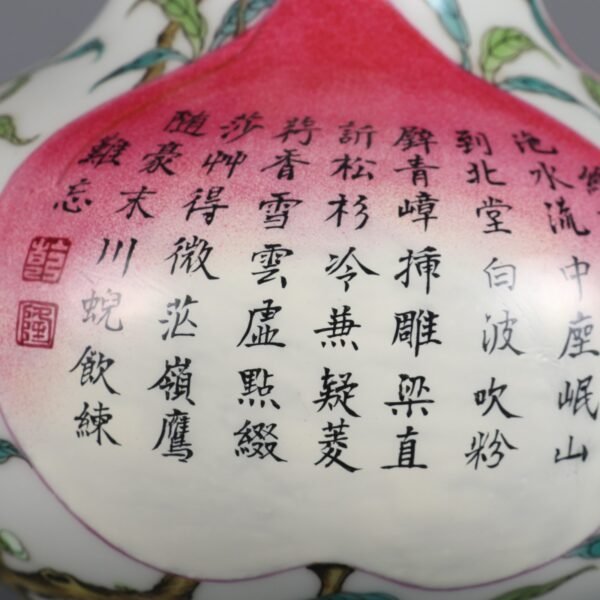 沲水流中座岷山
到北堂白波吹粉
壁青嶂揷雕梁直
訝松杉冷兼疑菱
荇香雪雲虛點綴
莎艸得微茫嶺鷹
隨豪末川蜺飲練
難忘
乾
隆